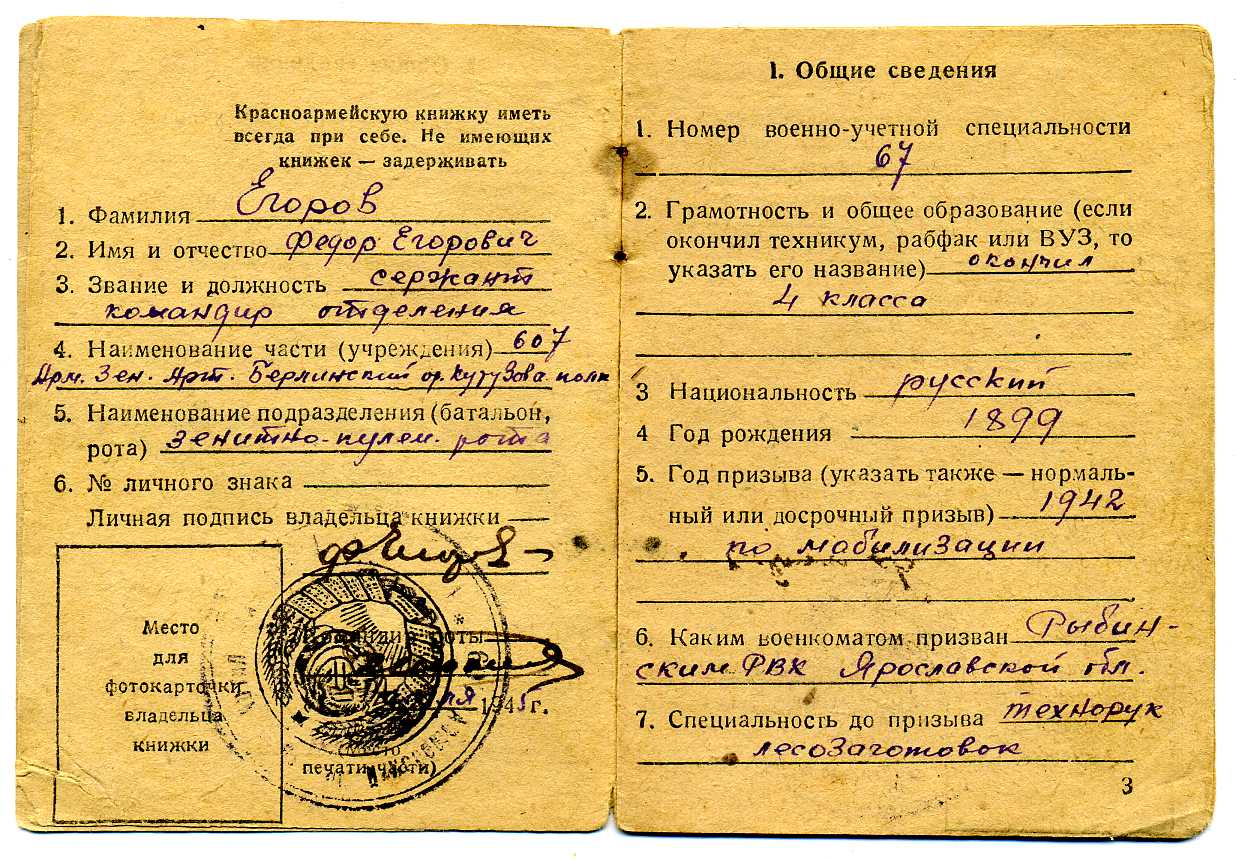 Красноармейскую книжку иметь
всегда при себе. Не имеющих
книжек — задерживать
1. Фамилия Егоров
2. Имя и отчество Федор Егорович
3. Звание и должность сержант
командир отделения
4. Наименование части (учреждения) 607
Арм. Зен. Арт. Берлинский ор. Кутузова полк
5. Наименование подразделения (батальон,
рота) зенитно-пулем. рота
6. № личного знака
Личная подпись владельца книжки
ФЕгоров
Место
для
фотокарточки
владельца
книжки
Командир роты
1945 г.
(Место
печати части)
1. Общие сведения
1. Номер военно-учетной специальности
67
2. Грамотность и общее образование (если
окончил техникум, рабфак или ВУЗ, то
указать его название) окончил
4 класса
3 Национальность русский
4 Год рождения 1899
5. Год призыва (указать также — нормаль-
ный или досрочный призыв) 1942
по мобилизации
6. Каким военкоматом призван Рыбин-
ским РВК Ярославской обл.
7. Специальность до призыва технорук
лесозаготовок
3